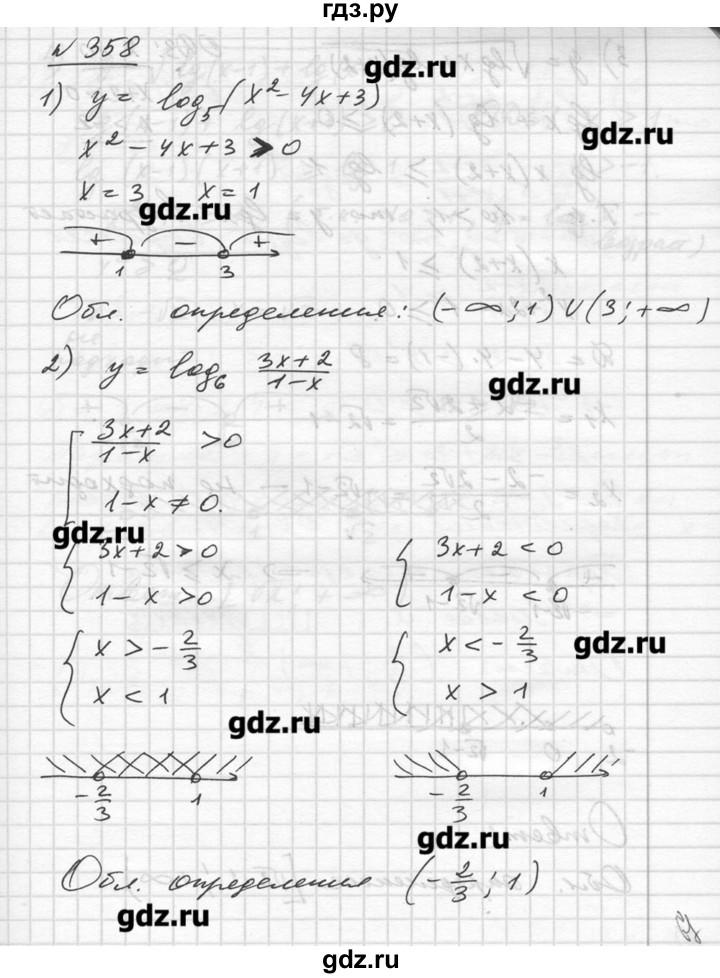 гдз.ру
№ 358
gdz.ru
1) y = log₅(x² - 4x + 3)
gdz.ru
x² - 4x + 3 > 0
x = 3   x = 1
gdz.ru
+ − +
1 3
Обл. определения: (-∞; 1) ∪ (3; +∞)
2) y = log₆ (3x+2)/(1-x)
gdz.ru
(3x+2)/(1-x) > 0
1 - x ≠ 0.
gdz.ru
3x + 2 > 0   3x + 2 < 0
1 - x > 0   1 - x < 0
x > -2/3   x < -2/3
gdz.ru
x < 1   x > 1
gdz.ru
-2/3 1   -2/3 1
gdz.ru
Обл. определения (-2/3; 1)
gdz.ru
gdz.ru